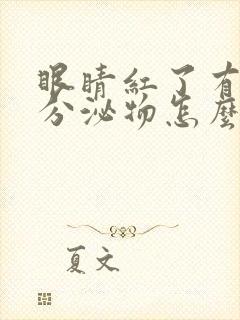 眼睛紅了有
分泌物怎麼
夏文